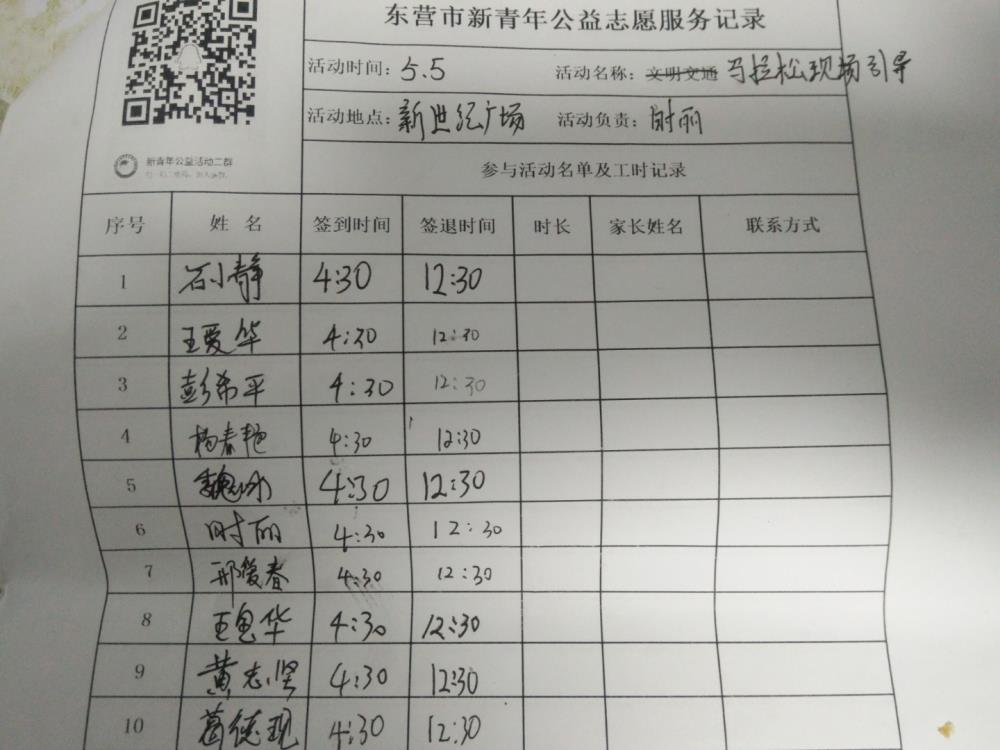 东营市新青年公益志愿服务记录
活动时间：5.5 活动名称：文明交通 马拉松现场引导
活动地点：新世纪广场 活动负责：时丽
新青年公益活动二群
参与活动名单及工时记录
序号 姓名 签到时间 签退时间 时长 家长姓名 联系方式
1 石小静 4:30 12:30
2 王爱华 4:30 12:30
3 彭希平 4:30 12:30
4 杨春艳 4:30 12:30
5 魏冰 4:30 12:30
6 时丽 4:30 12:30
7 邢俊春 4:30 12:30
8 王 华 4:30 12:30
9 黄志坚 4:30 12:30
10 葛德现 4:30 12:30